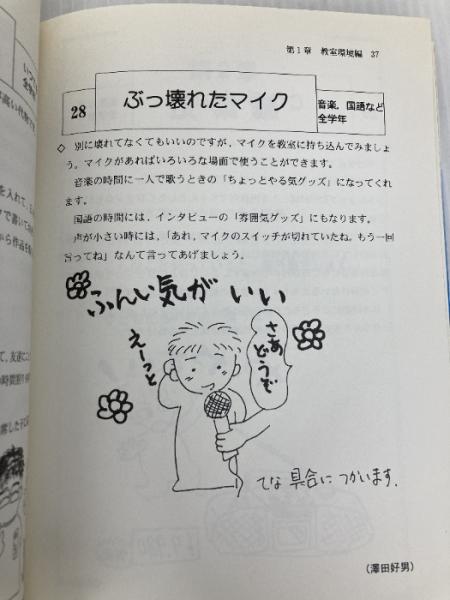 第1章 教室環境編 37
28
ぶっ壊れたマイク
音楽，国語など
全学年
◇ 別に壊れてなくてもいいのですが，マイクを教室に持ち込んでみましょ
う。マイクがあればいろいろな場面で使うことができます。
音楽の時間に一人で歌うときの「ちょっとやる気グッズ」になってくれ
ます。
国語の時間には，インタビューの「雰囲気グッズ」にもなります。
声が小さい時には，「あれ，マイクのスイッチが切れていたね。もう一回
言ってね」なんて言ってあげましょう。
ふんい気が いい
えーっと
さあ
どうぞ
てな 具合に つかいます．
（澤田好男）
全学年
を入れて，